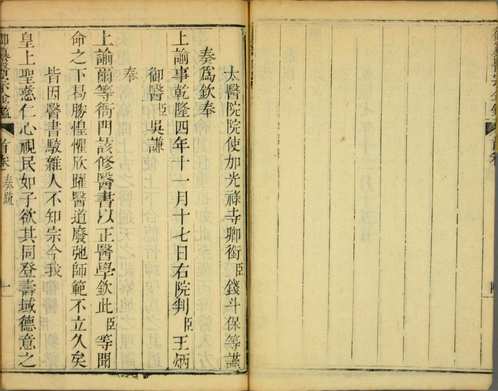 太醫院院使加光祿寺卿銜臣錢斗保等謹
奏為欽奉
上諭事乾隆四年十一月十七日右院判臣王炳
御醫臣吳謙
奉
上諭爾等衙門該修醫書以正醫學欽此臣等聞
命之下曷勝惶懼欣躍醫道廢弛師範不立久矣
皆因醫書駁雜人不知宗今我
皇上聖慈仁心視民如子欲其同登壽域德意之
首卷
奏疏
一